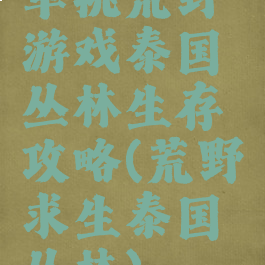 单挑荒野
游戏泰国
丛林生存
攻略(荒野
求生泰国
丛林)